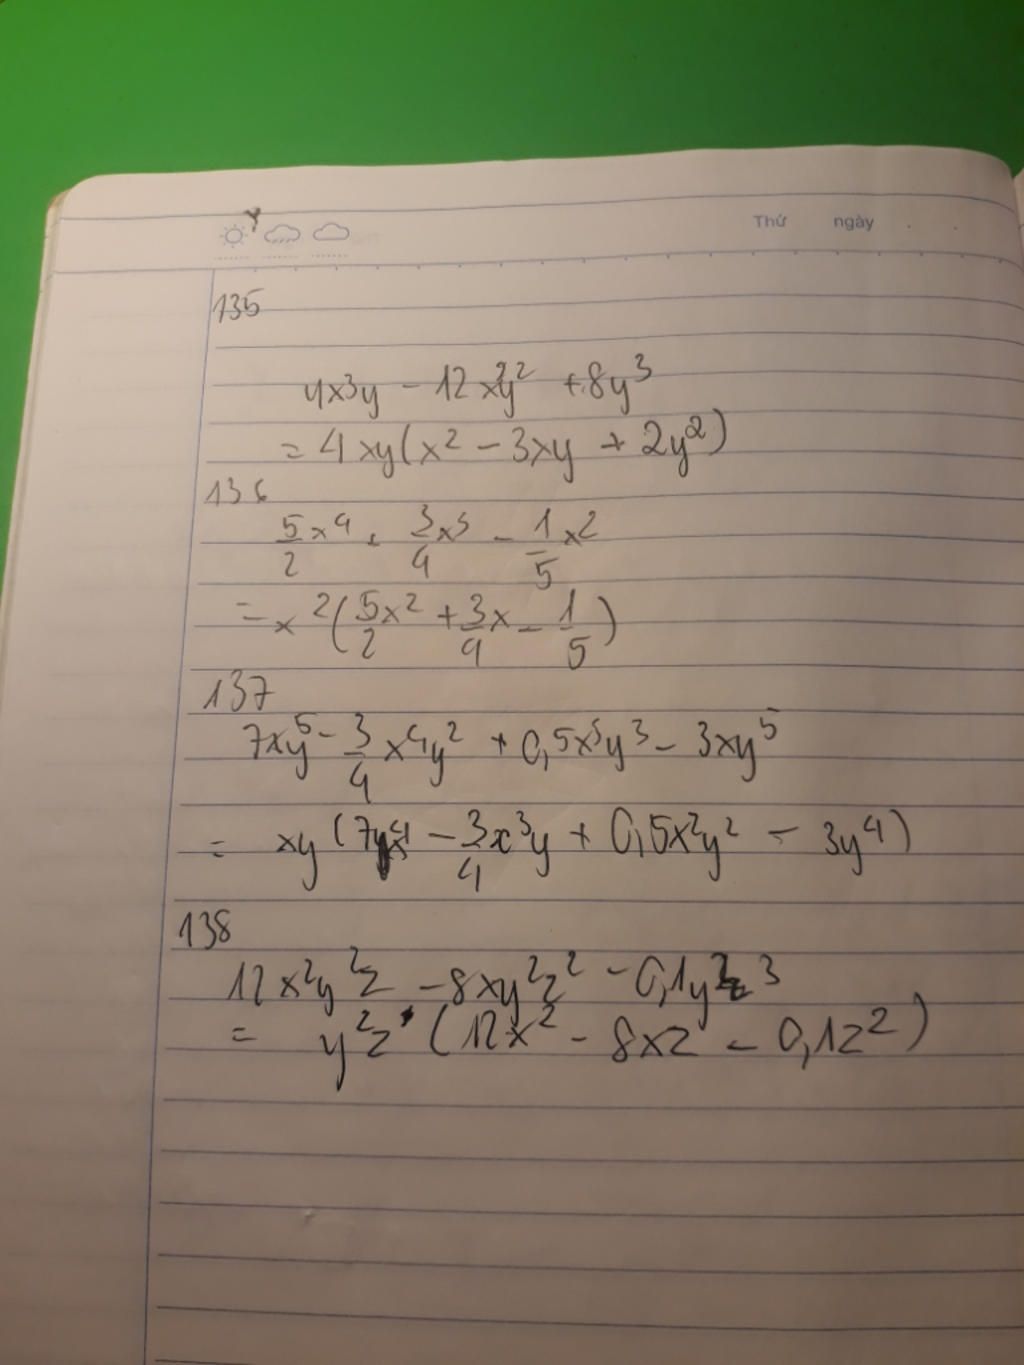 Thứ ngày
135
4x³y - 12x²y² + 8y³
= 4xy(x² - 3xy + 2y²)
136
5/2 x⁴ + 3/4 x³ - 1/5 x²
= x²(5/2 x² + 3/4 x - 1/5)
137
7xy⁵ - 3/4 x⁴y² + 0,5x³y³ - 3xy⁵
= xy(7y⁴ - 3/4 x³y + 0,5x²y² - 3y⁴)
138
12x²y²z - 8xy²z² - 0,1y²z³
= y²z (12x² - 8xz - 0,1z²)